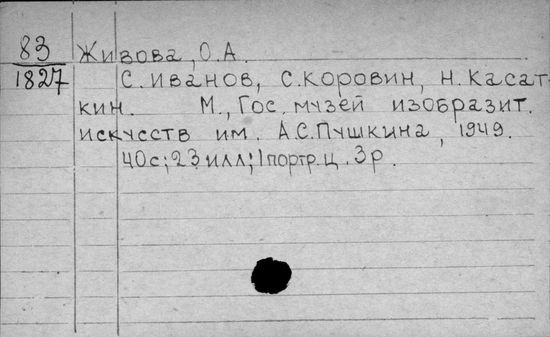 83 Живова, О.А.
1827 С. Иванов, С. Коровин, Н. Касат-
кин. М., Гос. музей изобразит.
искусств им. А.С. Пушкина, 1949.
40с; 23 илл; 1 портр. ц. 3р.